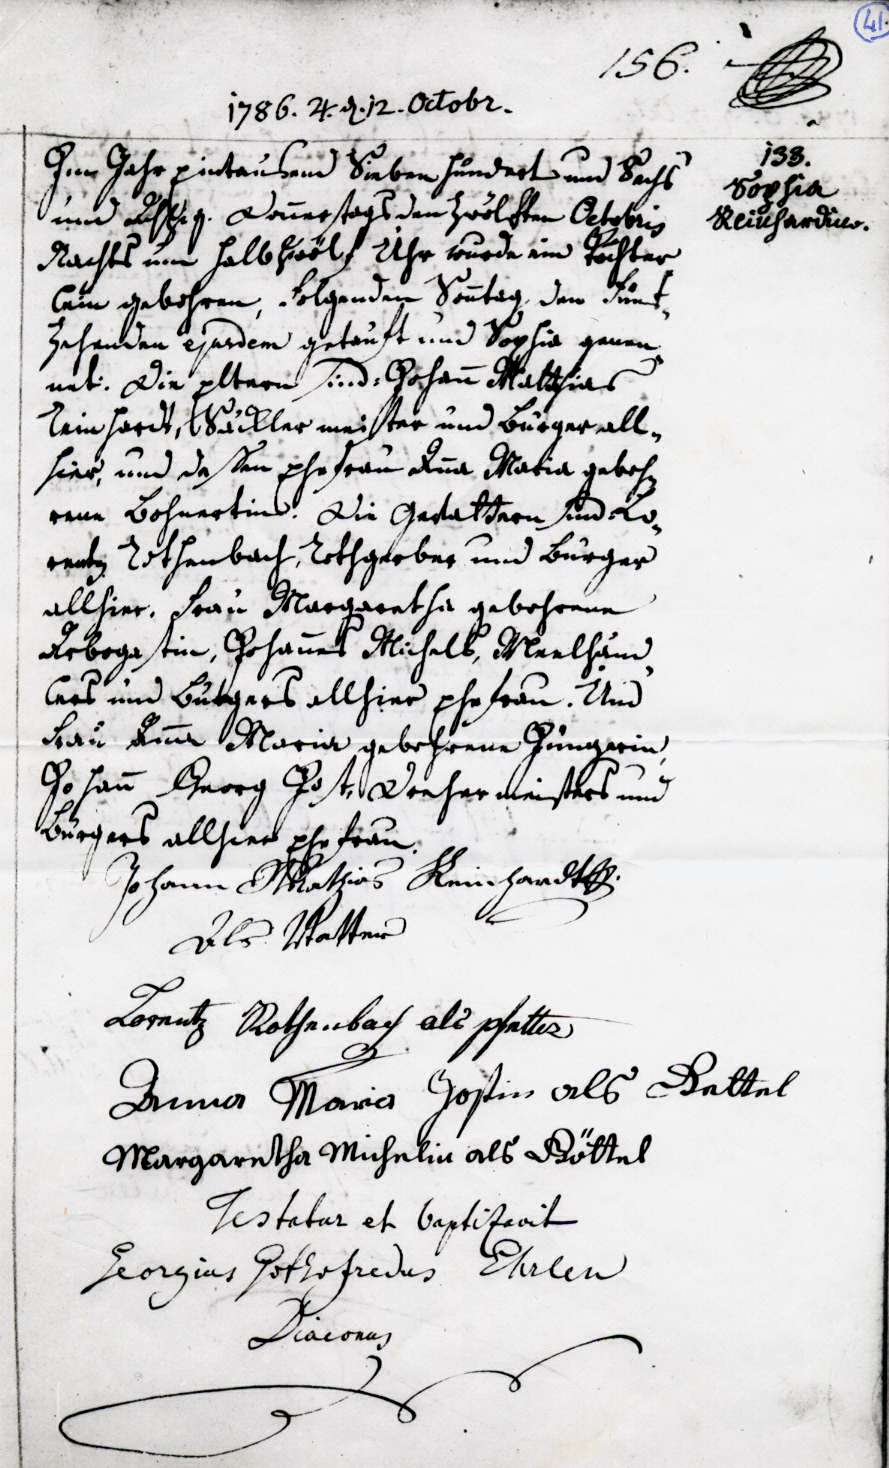 41.
156.
1786. 4. d. 12. Octobr.
138.
Sophia
Reinhardin.
Im Jahr eintausend Sieben hundert und Sechs
und Achtzig. Donnerstags den zwölften Octobris
Nachts um halb zwölf Uhr wurde ein Töchter
lein gebohren, folgenden Sonntag den Fünf-
zehenden ejusdem getauft und Sophia genen
net. Die Eltern sind: Johann Matthias
Reinhardt, Säcklermeister und Burger all-
hier, und dessen Ehefrau Anna Maria geboh
rene Bohnertin. Die Gevattern sind: Lo-
rentz Rothenbach, Rothgerber und Burger
allhier. Frau Margaretha gebohrene
Arbogastin, Johannes Michels, Meelhänd
lers und Burgers allhier Ehefrau. Und
Frau Anna Maria gebohrene Jüngerin,
Johann Georg Jost, Drehermeisters und
Burgers allhier Ehefrau.
Johann Mathias Reinhardt
Als Vatter
Lorentz Rothenbach als pfetter
Anna Maria Jostin als Gettel
Margaretha Michelin als Göttel
Testatur et baptizavit
Georgius Gothofredus Ehrlen
Diaconus